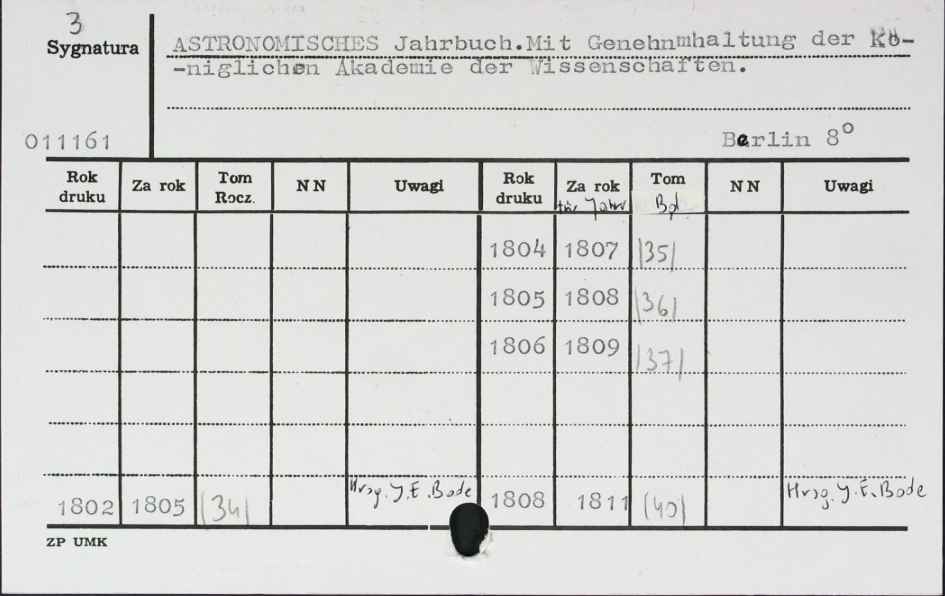 3
Sygnatura
ASTRONOMISCHES Jahrbuch.Mit Genehnmhaltung der Kö-
-niglichen Akademie der Wissenschaften.
011161
Berlin 8°
Rok druku Za rok Tom Rocz. NN Uwagi Rok druku Za rok für Jahr Tom Bd. NN Uwagi
1804 1807 |35|
1805 1808 |36|
1806 1809 |37|
1802 1805 |34| Hrsg. J. E. Bode 1808 1811 |40| Hrsg. J. E. Bode
ZP UMK